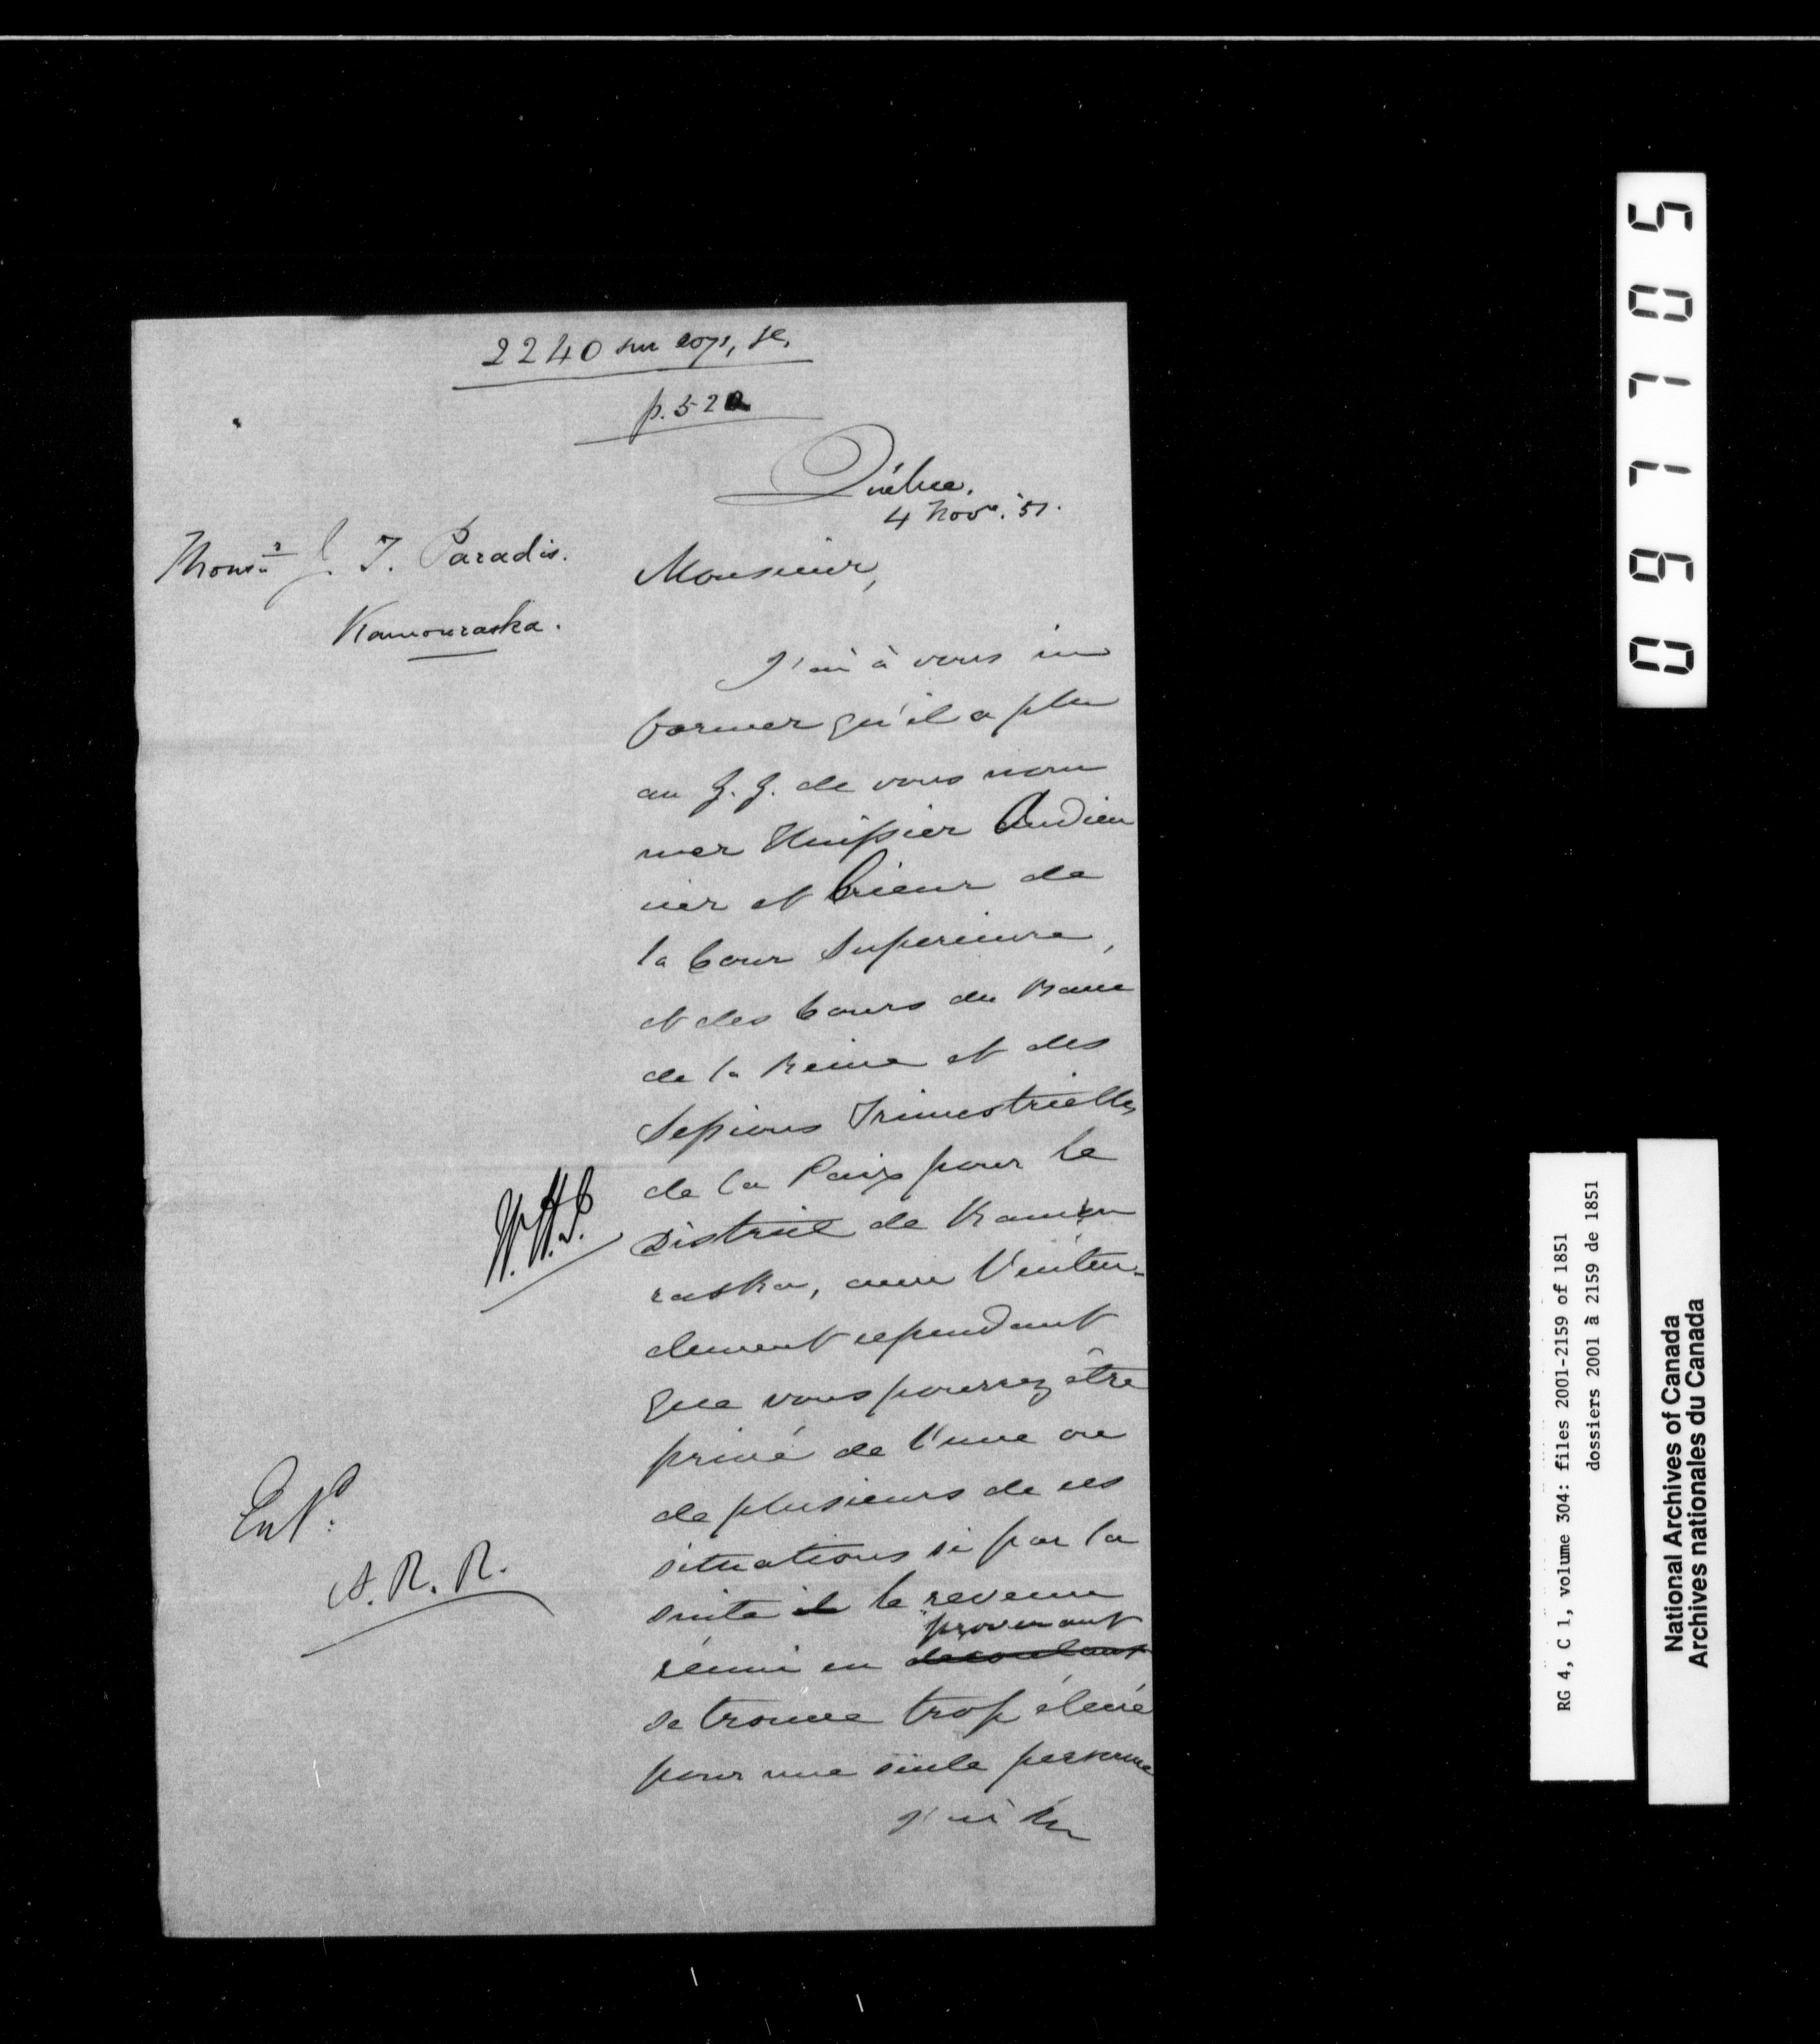 2240 sur
p. 52
Québec.
4 Novr. '51.
Monsr J. T. Paradis.
Kamouraska.
Monsieur,
J'ai à vous in
former qu'il a plu
au G. G. de vous nom
mer Huissier Audien
cier et Crieur de
la Cour Superieure,
et des Cours du Banc
de la Reine et des
Sessions Trimestrielles
de la Paix pour le
District de Kamou
raska, avec l'enten-
dement cependant
que vous pourrez être
privé de l'une ou
de plusieurs de ces
situations si par la
suite il le revenu
réuni en decoulant provenant
se trouve trop élevé
pour une seule personne
J'ai
Entd:
A. R. R.
097705
RG 4, C 1, volume 304: files 2001-2159 of 1851
dossiers 2001 à 2159 de 1851
National Archives of Canada
Archives nationales du Canada